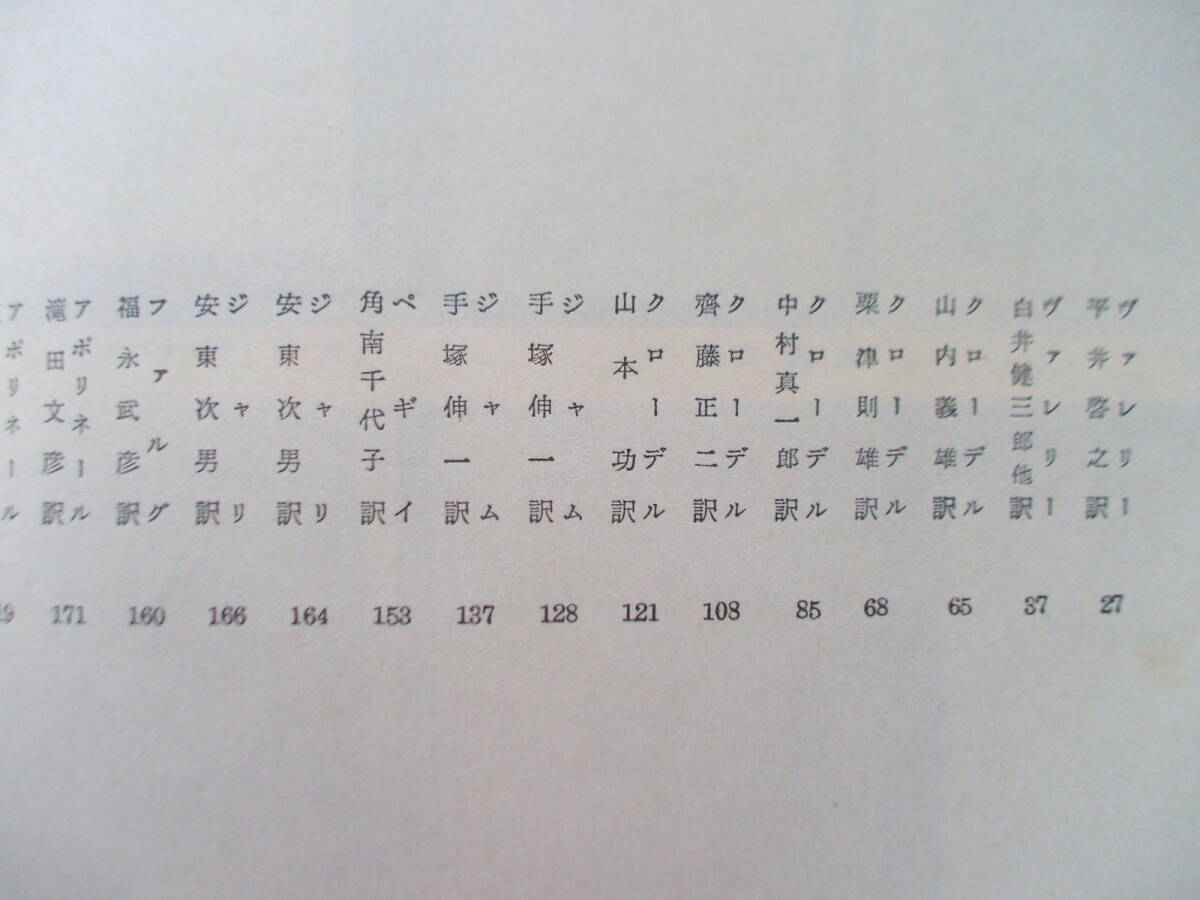 ヴァレリー
平井啓之訳
27
ヴァレリー
白井健三郎他訳
37
クローデル
山内義雄訳
65
クローデル
粟津則雄訳
68
クローデル
中村真一郎訳
85
クローデル
齊藤正二訳
108
クローデル
山本功訳
121
ジャム
手塚伸一訳
128
ジャム
手塚伸一訳
137
ペギイ
角南千代子訳
153
ジャリ
安東次男訳
164
ジャリ
安東次男訳
166
ファルグ
福永武彦訳
160
アポリネール
滝田文彦訳
171
アポリネール